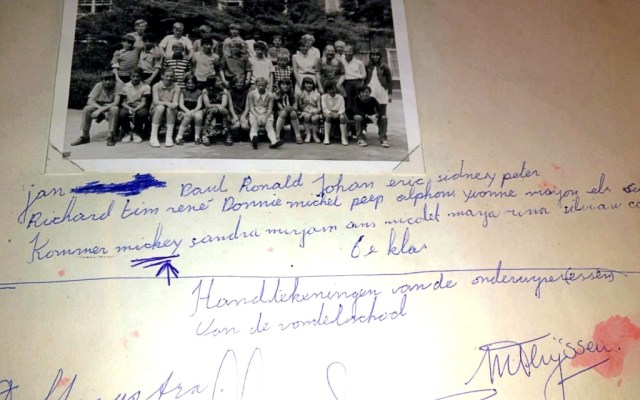 jan Paul Ronald Johan eric sidney peter
Richard tim rené Donnie michel peep alphons yvonne marjon els
Kommer mickey sandra mirjam ans nicolet marja
6e klas
Handtekeningen van de onderwijzer(essen)
van de vondelschool
M Thijssen.